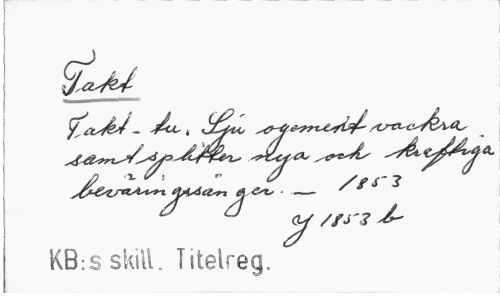 Takt
Takt-tu. Sju ogement vackra
samt splitter nya och kraftiga
beväringssånger. — 1853
Y 1853 b
KB:s skill. Titelreg.